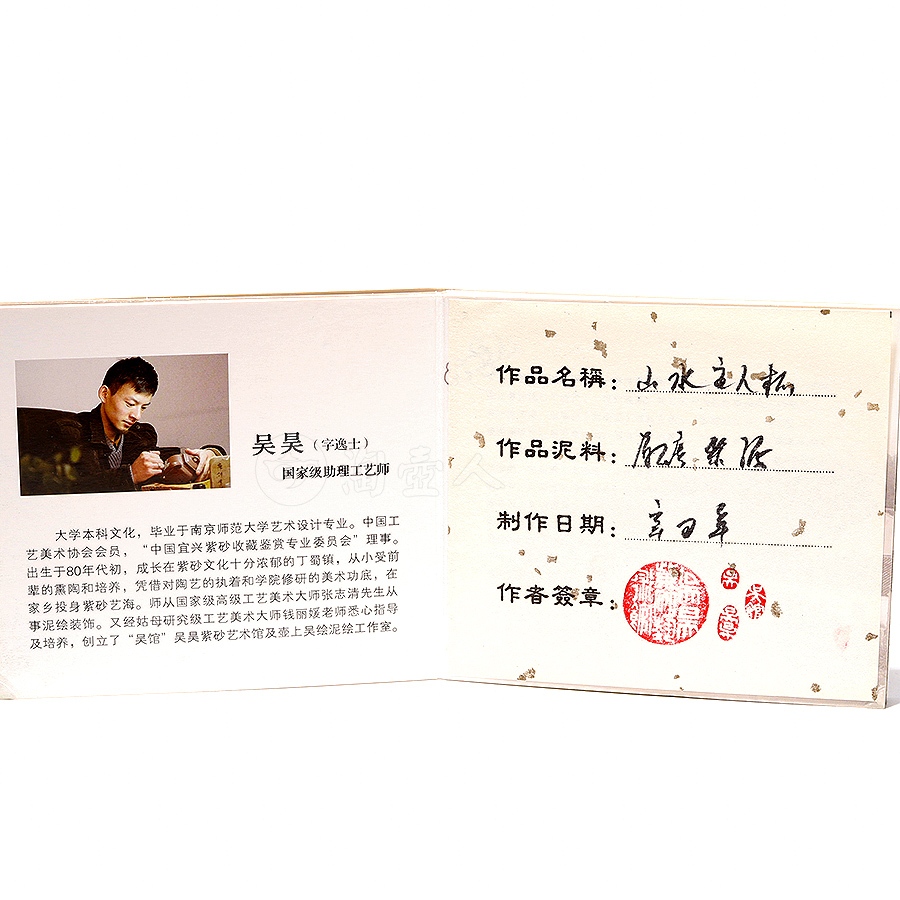 吴昊(字逸士)
国家级助理工艺师
大学本科文化，毕业于南京师范大学艺术设计专业。中国工
艺美术协会会员，“中国宜兴紫砂收藏鉴赏专业委员会”理事。
出生于80年代初，成长在紫砂文化十分浓郁的丁蜀镇，从小受前
辈的熏陶和培养，凭借对陶艺的执着和学院修研的美术功底，在
家乡投身紫砂艺海。师从国家级高级工艺美术大师张志清先生从
事泥绘装饰。又经姑母研究级工艺美术大师钱丽媛老师悉心指导
及培养，创立了“吴馆”吴昊紫砂艺术馆及壶上吴绘泥绘工作室。
淘壶人
作品名稱：山水主人杯
作品泥料：原底紫泥
制作日期：
作者簽章：